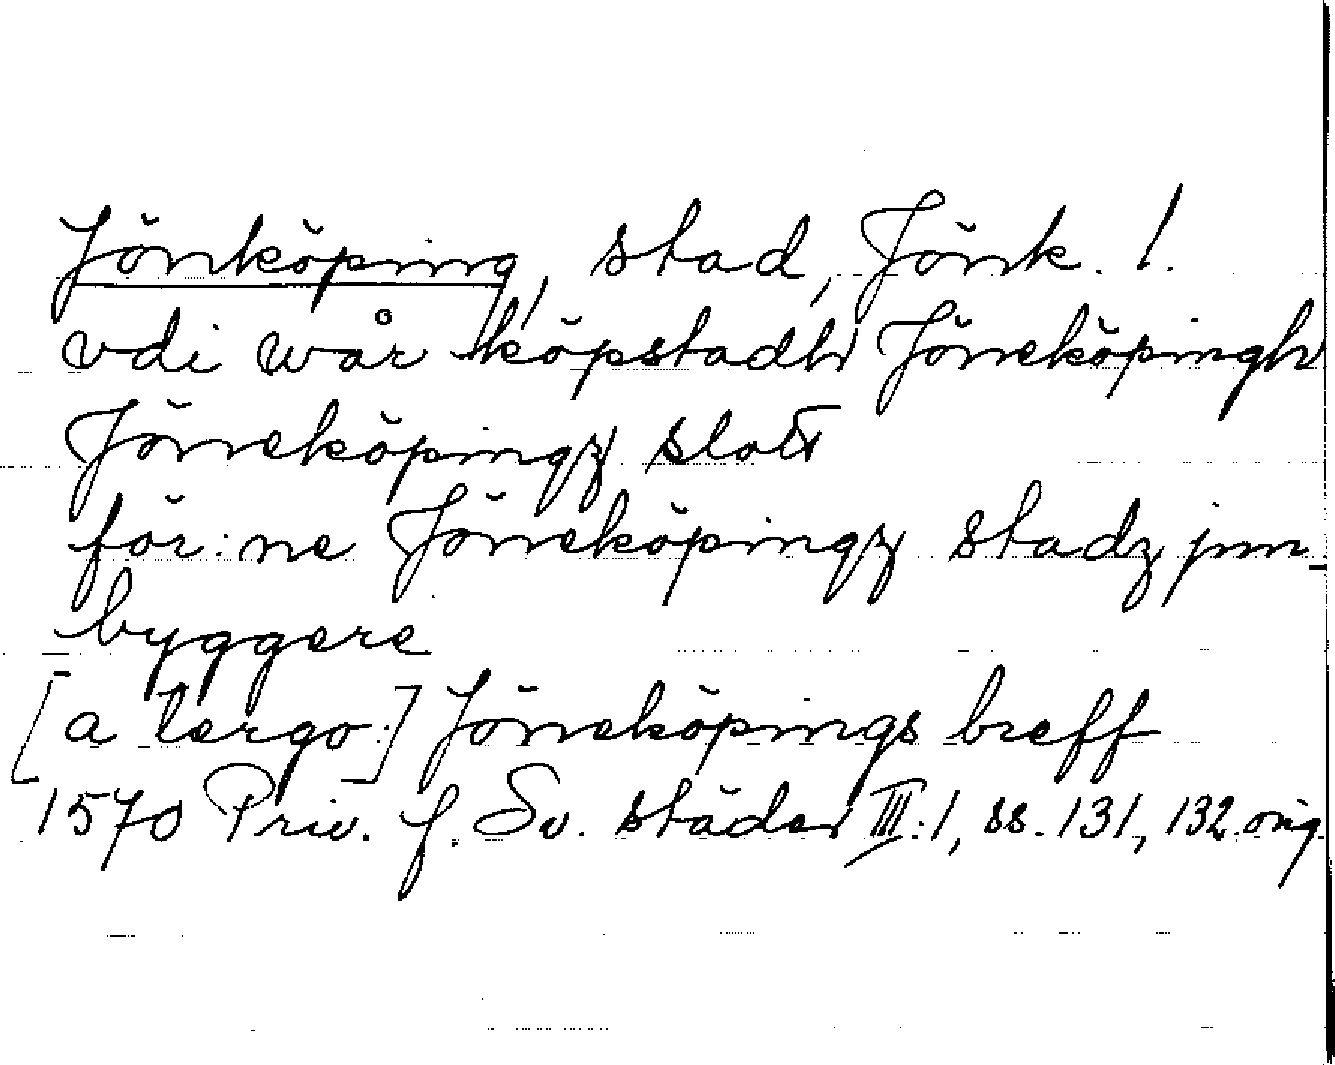 Jönköping, stad, Jönk. l.
vdi wår köpstadh Jöneköpingh
Jöneköpingz slott
för:ne Jöneköpingz stadz jnn-
byggere
[a tergo:] Jöneköpings breff
1570 Priv. f. Sv. städer III:1, ss. 131, 132 orig